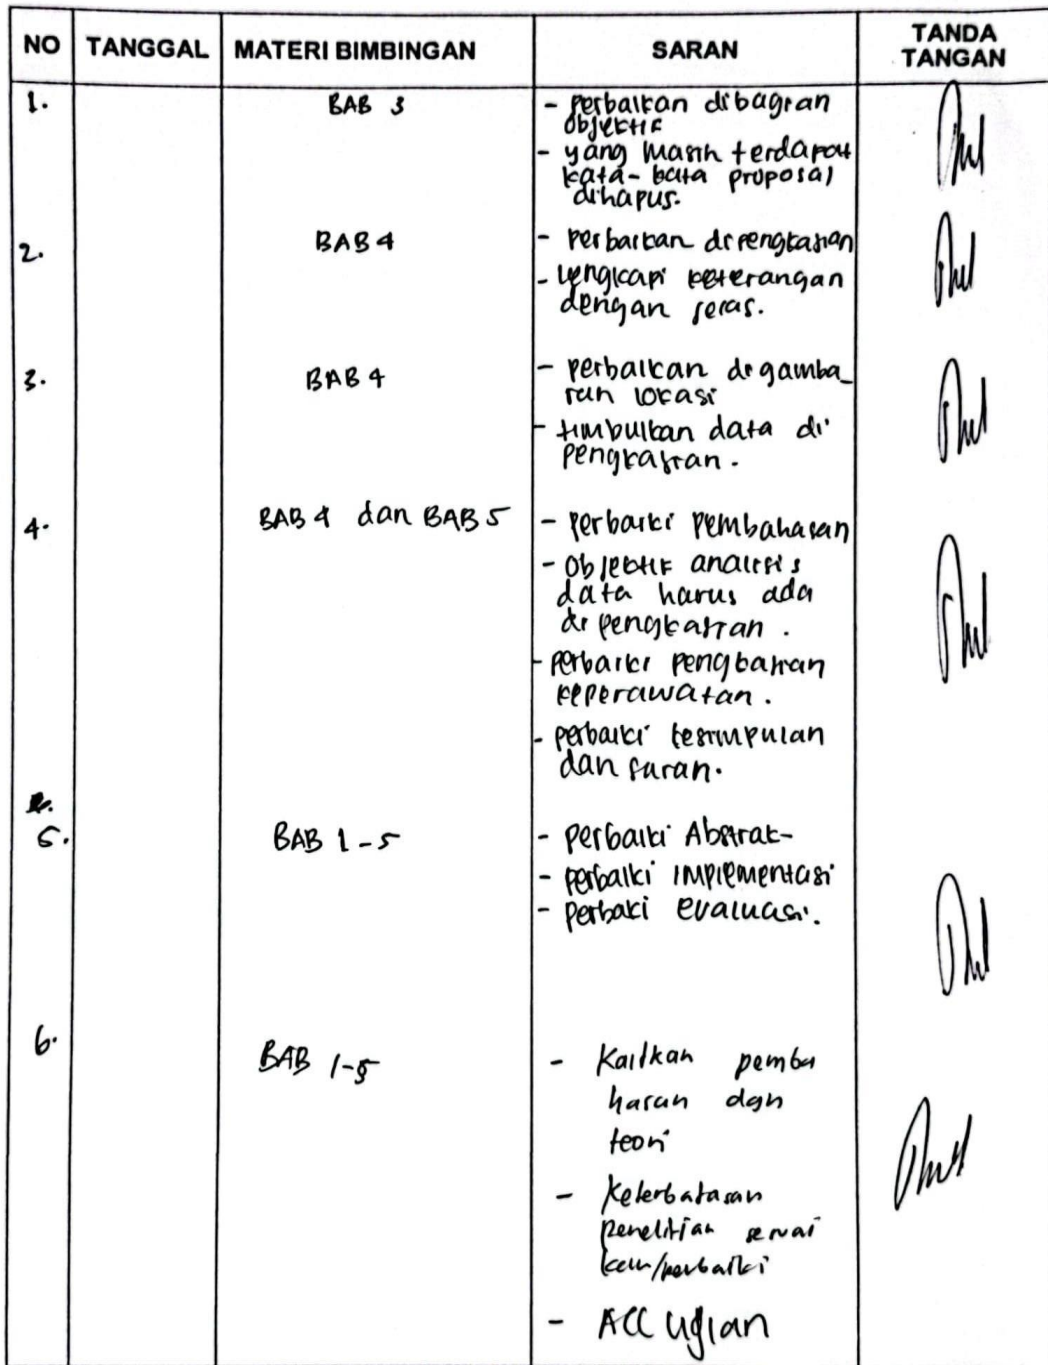 NO TANGGAL MATERI BIMBINGAN SARAN TANDA TANGAN
1. BAB 3 - perbaikan dibagian
objektif
- yang masih terdapat
kata-kata proposal
dihapus.
2. BAB 4 - perbaikan di pengkajian
- lengkapi keterangan
dengan jelas.
3. BAB 4 - perbaikan di gamba-
ran lokasi
- timbulkan data di
pengkajian.
4. BAB 4 dan BAB 5 - perbaiki pembahasan
- objektif analisis
data harus ada
di pengkajian.
- perbaiki pengkajian
keperawatan.
- perbaiki kesimpulan
dan saran.
5. BAB 1-5 - perbaiki Abstrak-
- perbaiki implementasi
- perbaki evaluasi.
6. BAB 1-5 - Kaitkan pemba
hasan dgn
teori
- Keterbatasan
penelitian sesuai
/perbaiki
- ACC ujian